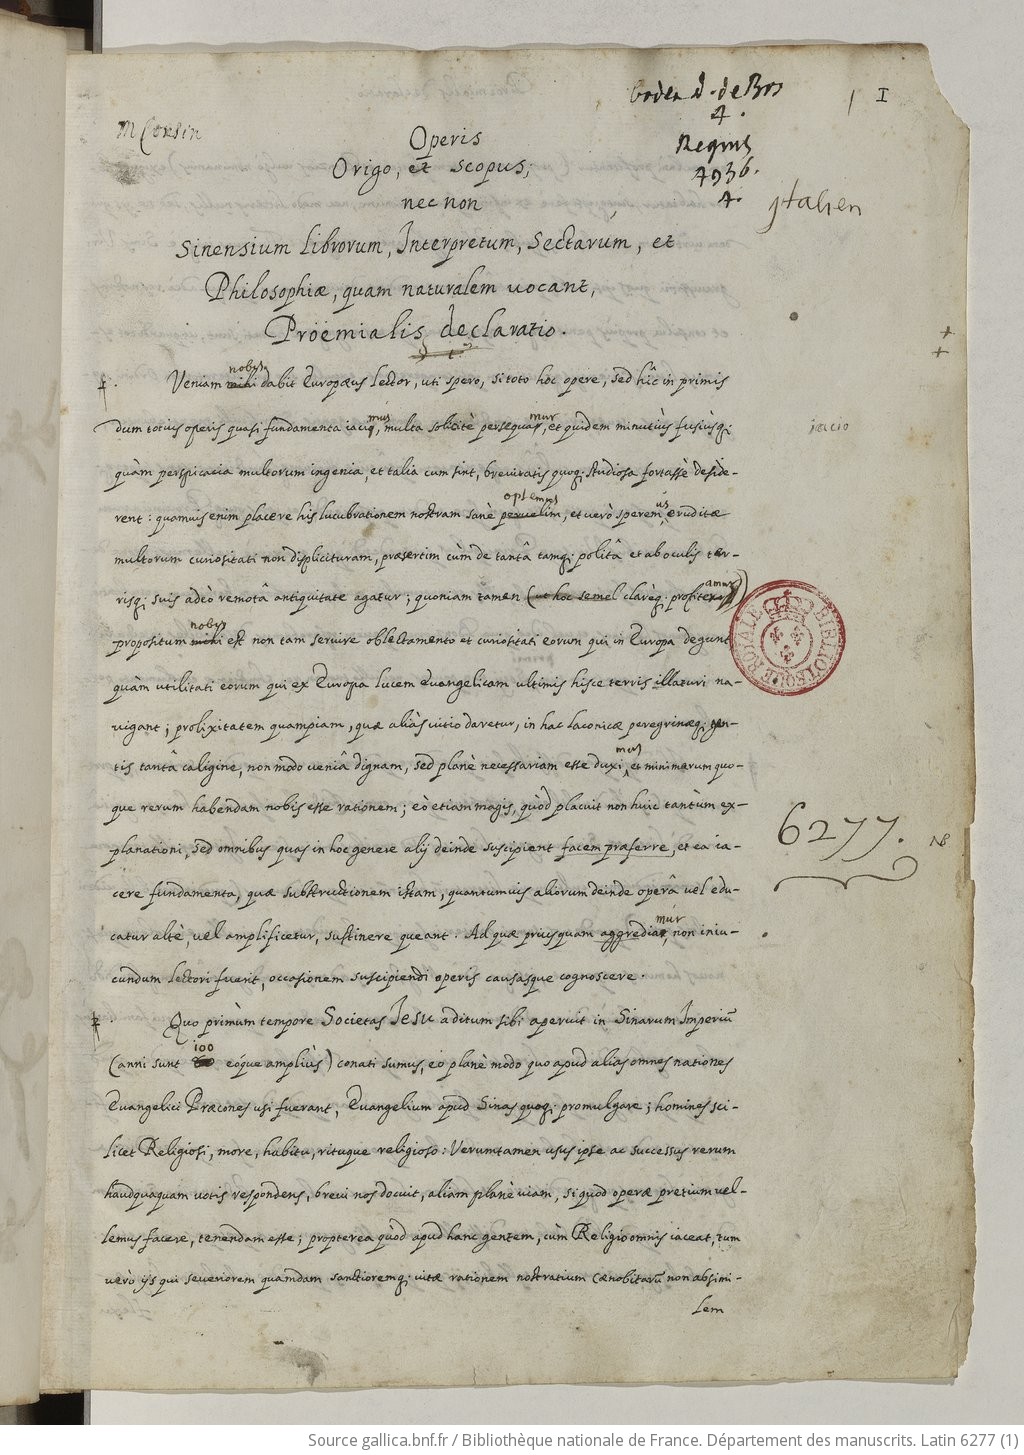 M Corsin
Codex D. de Bos
4.
Regius
4936.
4.
I
jtalien
Operis
Origo, et scopus;
nec non
Sinensium librorum, Interpretum, Sectarum, et
Philosophiæ, quam naturalem uocant,
Proëmialis declaratio.
1. Veniam mihi nobis dabit Europæus lector, uti spero, si toto hoc opere, sed hîc in primis
dum totius operis quasi fundamenta iacimus, multa solicitè persequamur, et quidem minutiùs fusiùsq;
iacio
quàm perspicacia multorum ingenia, et talia cum sint, breuitatis quoq; studiosa fortassè deside-
rent: quamuis enim placere his lucubrationem nostram sanè peruelim optemus, et uerò speremus, eruditæ
multorum curiositati non displicituram, præsertim cùm de tantâ tamq; politâ et ab oculis ter-
risq; suis adeò remotâ antiquitate agatur; quoniam tamen (ut hoc semel clarèq; profiteamur)
propositum mihi nobis est non tam seruire oblectamento et curiositati eorum qui in Europa degunt
quàm utilitati eorum qui ex Europa lucem Euangelicam ultimis hisce terris illaturi na-
uigant; prolixitatem quampiam, quæ aliàs uitio daretur, in hac laconicæ peregrinæq; gen-
tis tantâ caligine, non modo ueniâ dignam, sed planè necessariam esse duximus, et minimarum quo-
que rerum habendam nobis esse rationem; eò etiam magis, quòd placuit non huic tantùm ex-
planationi, sed omnibus quas in hoc genere alij deinde suscipient facem præferre, et ea ia-
cere fundamenta, quæ substructionem istam, quantumuis aliorum deinde operâ uel edu-
catur altè, uel amplificetur, sustinere queant. Ad quæ priusquam aggrediamur, non iniu-
cundum lectori fuerit, occasionem suscipiendi operis causasque cognoscere.
6277.
NB
2. Quo primùm tempore Societas Iesu aditum sibi aperuit in Sinarum Imperiũ
(anni sunt 100 eóque ampliùs) conati sumus, eo planè modo quo apud alias omnes nationes
Euangelici Præcones usi fuerant, Euangelium apud Sinas quoq; promulgare; homines sci-
licet Religiosi, more, habitu, rituque religioso: Verumtamen usus ipse ac successus rerum
haudquaquam uotis respondens, breui nos docuit, aliam planè uiam, siquod operæ pretium uel-
lemus facere, tenendam esse; propterea quòd apud hanc gentem, cùm Religio omnis iaceat, tum
uerò ijs qui seueriorem quamdam sanctioremq; uitæ rationem nostratium Cœnobitarũ non absimi-
lem
BIBLIOTHECÆ REGIÆ
Source gallica.bnf.fr / Bibliothèque nationale de France. Département des manuscrits. Latin 6277 (1)